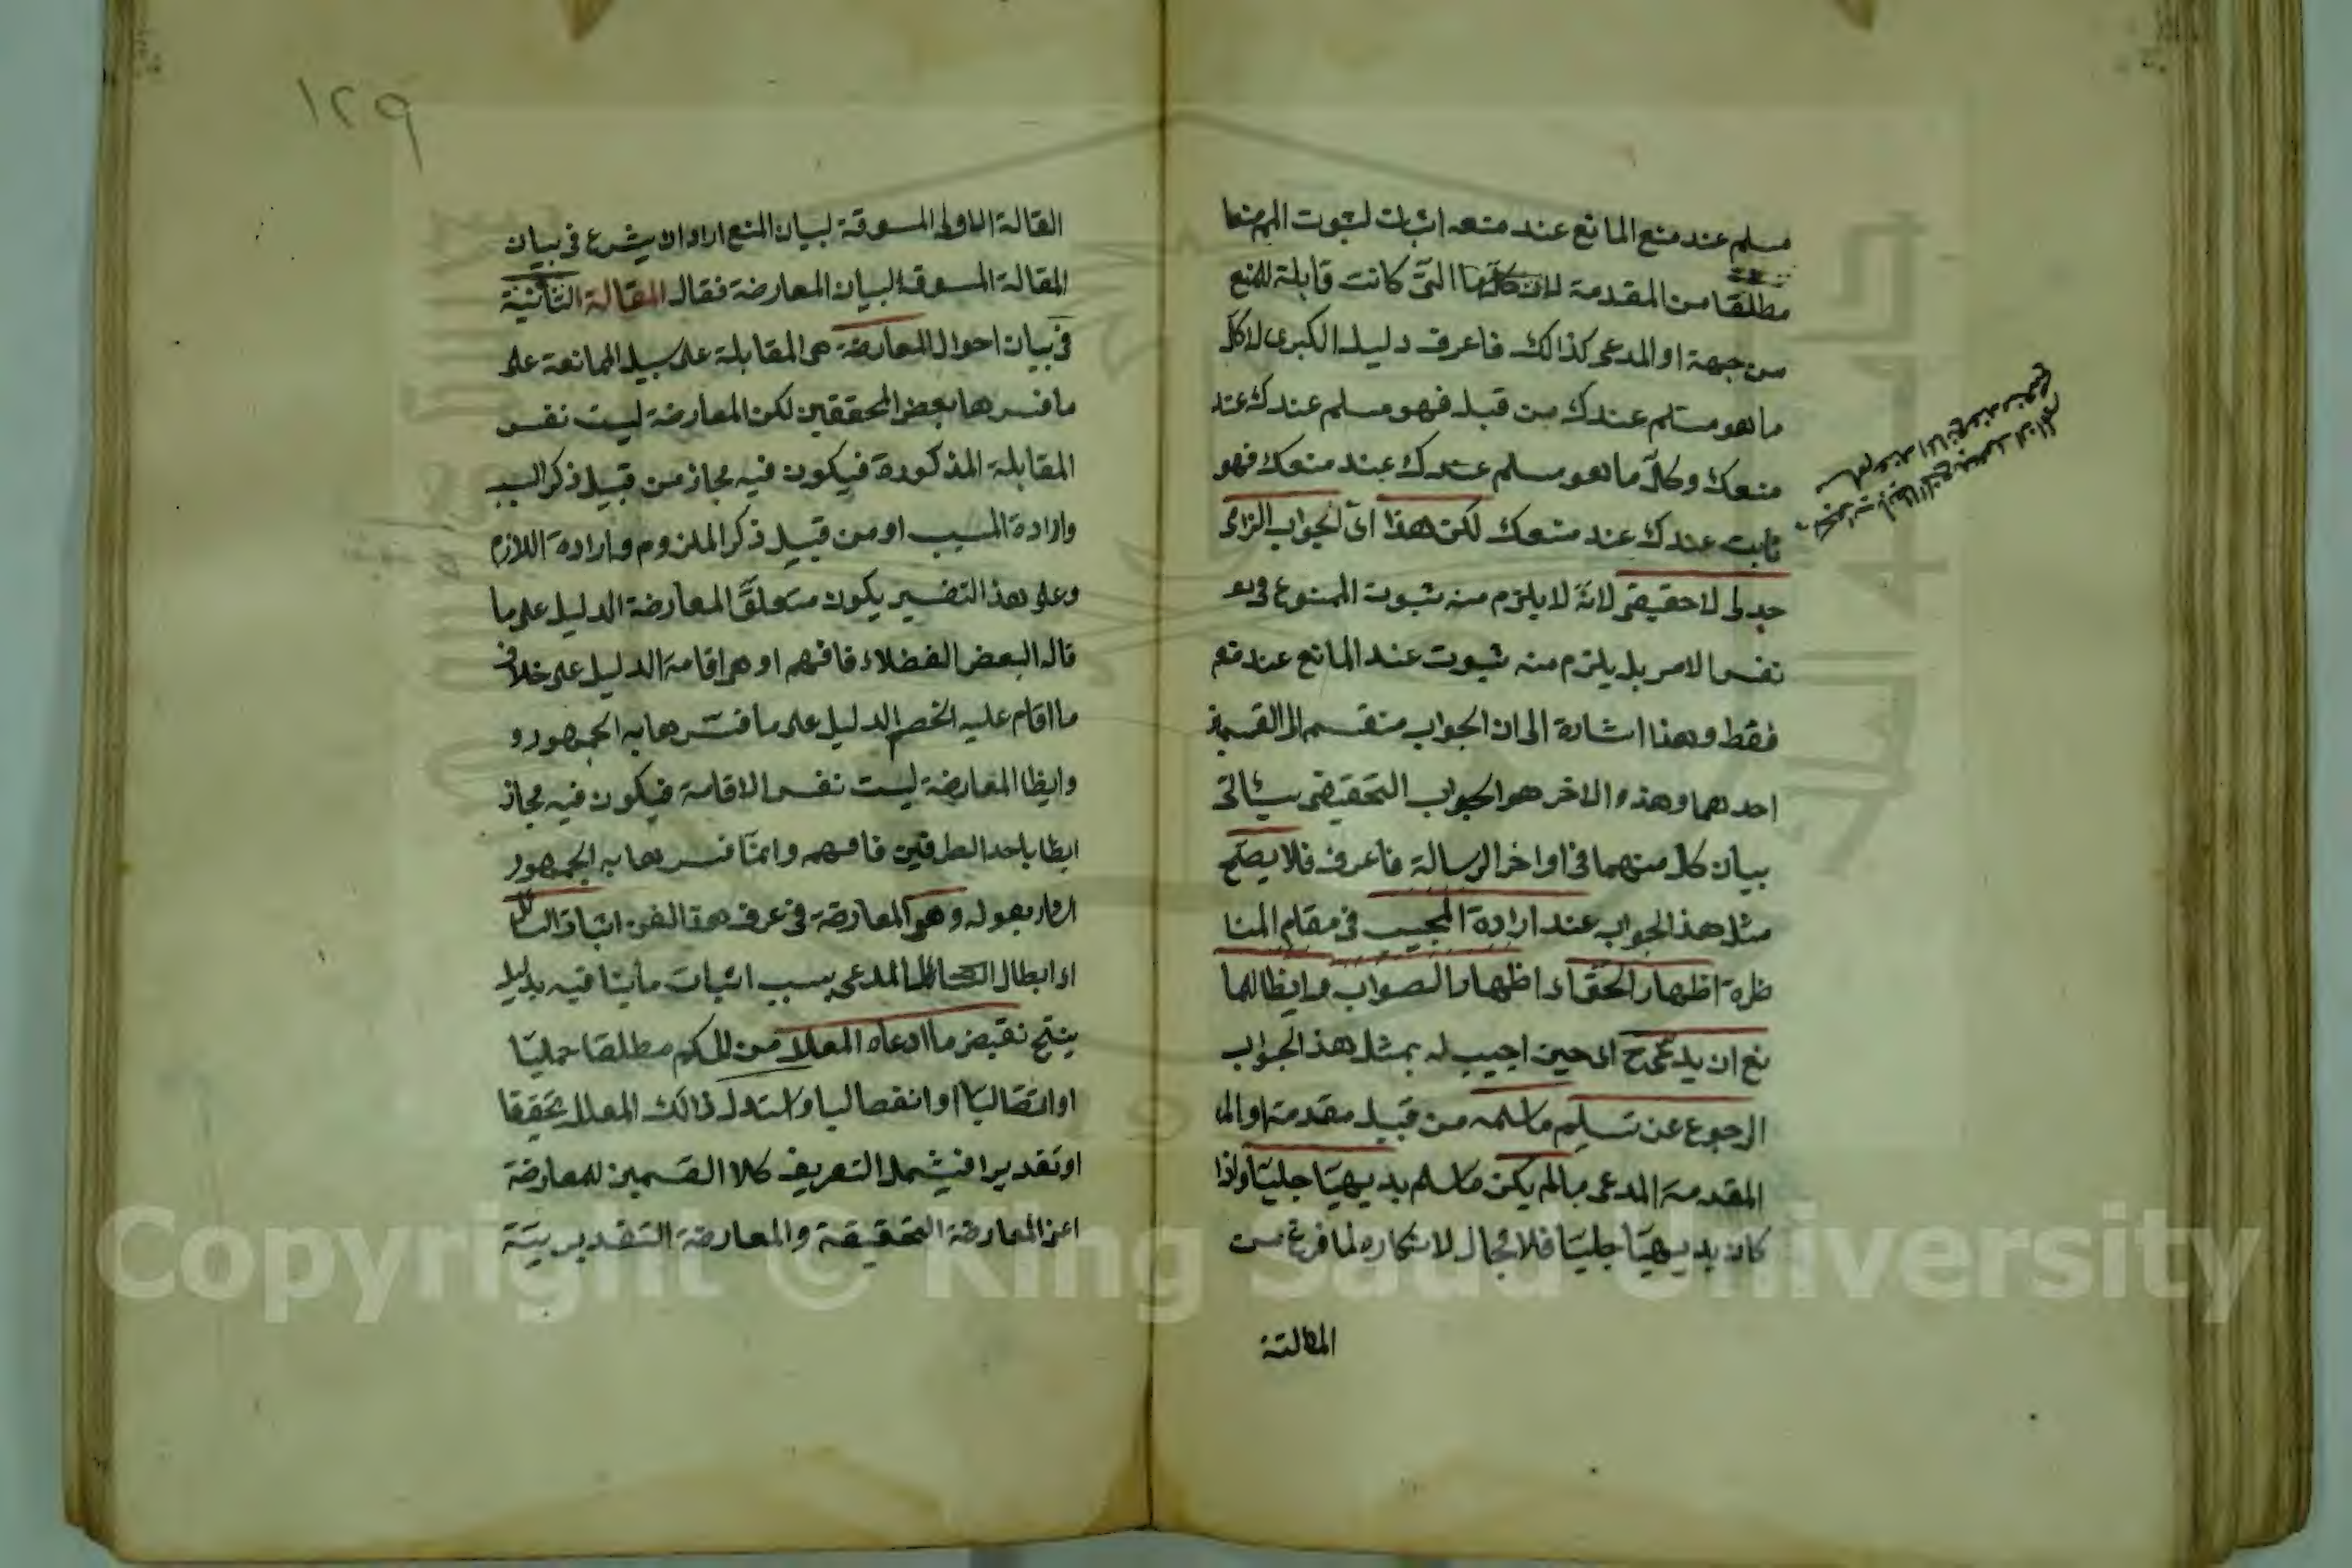 مسلم عند منع المانع عند منعه اثبات لثبوت المم منعا
مطلقا من المقدمة لان كل ما التى كانت قابلة للمنع
من جهة او المدعى كذالك فاعرف دليل الكبرى لا كل
ما هو مسلم عندك من قبل فهو مسلم عندك عند
منعك وكل ما هو مسلم عندك عند منعك فهو
ثابت عندك عند منعك لكن هذا اى الجواب الزامى
جدلى لا حقيقى لانه لا يلزم منه ثبوت الممنوع فى
نفس الامر بل يلزم منه ثبوت عند المانع عند منعه
فقط وهذا اشارة الى ان الجواب منقسم الى القسمين
احدهما وهذه والاخر هو الجواب التحقيقى سيئاتى
بيان كل منهما فى اواخر الرسالة فاعرف فلا يصح
مثل هذ الجواب عند ارادة المجيب فى مقام المنا
ظرة اظهار الحق اى اظهار الصواب وايظا لما
نع ان يدعى ح اى حين اجيب له بمثل هذ الجواب
الرجوع عن تسليم ما سلمه من قبل مقدمة او الى
المقدمة المدعى ما لم يكن ما سلم بديهيا جليا واذا
كان بديهيا جليا فلا مجال لانكاره لما فرغ من
المقالة
مسلم عند المانع عند منعه
١٢٩
القالة الاولى المسوقة لبيان المنع اراد ان يشرع فى بيان
المقالة المسوقة لبيان المعارضة فقال المقالة الثانية
فى بيان احوال المعارضة هى المقابلة على سبيل الممانعة على
ما فسرها بعض المحققين لكن المعارضة ليست نفس
المقابلة المذكورة فيكون فيه مجاز من قبيل ذكر السبب
وارادة المسبب او من قبيل ذكر الملزوم وارادة اللازم
وعلى هذ التفسير يكون متعلق المعارضة الدليل على ما
قاله البعض الفضلاء فافهم او هى اقامة الدليل على خلاف
ما اقام عليه الخصم الدليل على ما فسرها به الجمهور و
وايظا المعارضة ليست نفس الاقامة فيكون فيه مجاز
ايظا باحد الطرفين فافهم وانما فسرها به الجمهور
اراد بقوله وهى المعارضة فى عرف هذا الفن اثبات السائل
او ابطال السائل المدعى بسبب اثبات ما ينافيه بدليل
ينتج نقيض ما ادعاه المعلل من الحكم مطلقا حمليا
او اتصاليا او انفصاليا واستدل ذالك المعلل تحقيقا
او تقديرا فيشمل التعريف كلا القسمين للمعارضة
اعن المعارضة التحقيقة والمعارضة التقديريية
Copyright © King Saud University